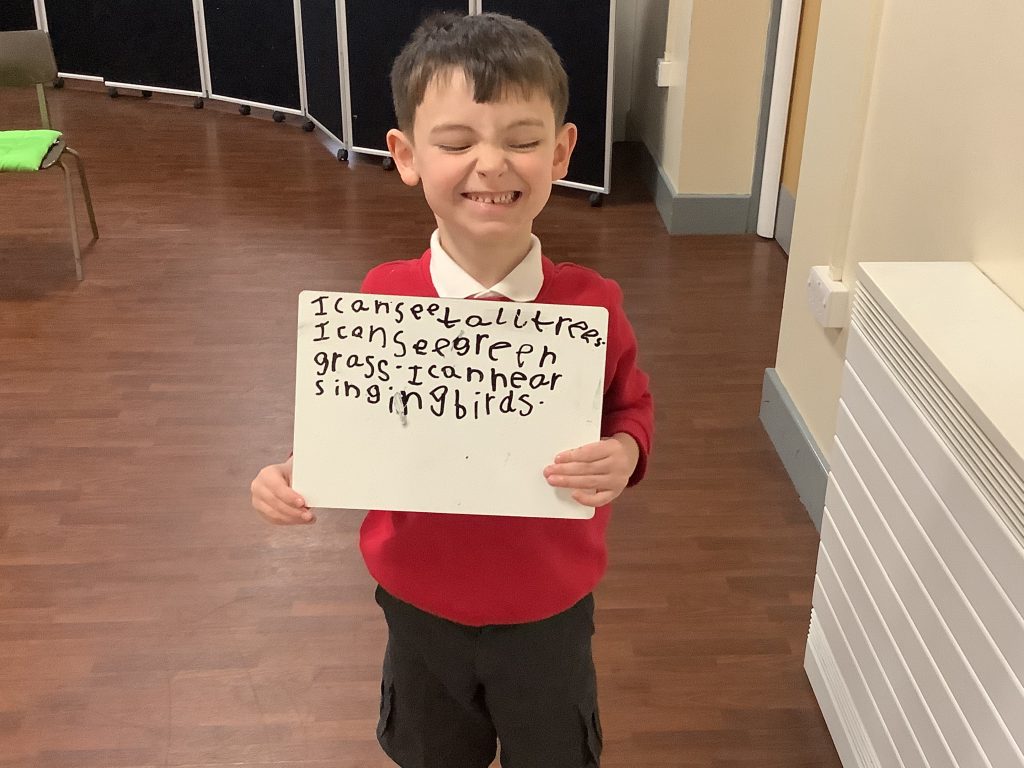 I can see tall trees.
I can see green
grass. I can hear
singing birds.